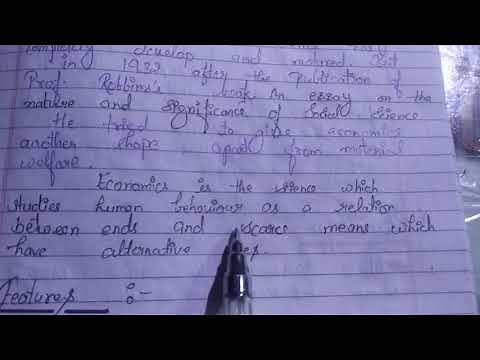 completely develop and matured. But
in 1932 after the Publication of
Prof. Robbins's book An essay on the
nature and significance of Social Science
He tried to give economics
another shape apart from material
welfare.
Economics is the science which
studies human behaviour as a relation
between ends and scarce means which
have alternative
Features :-